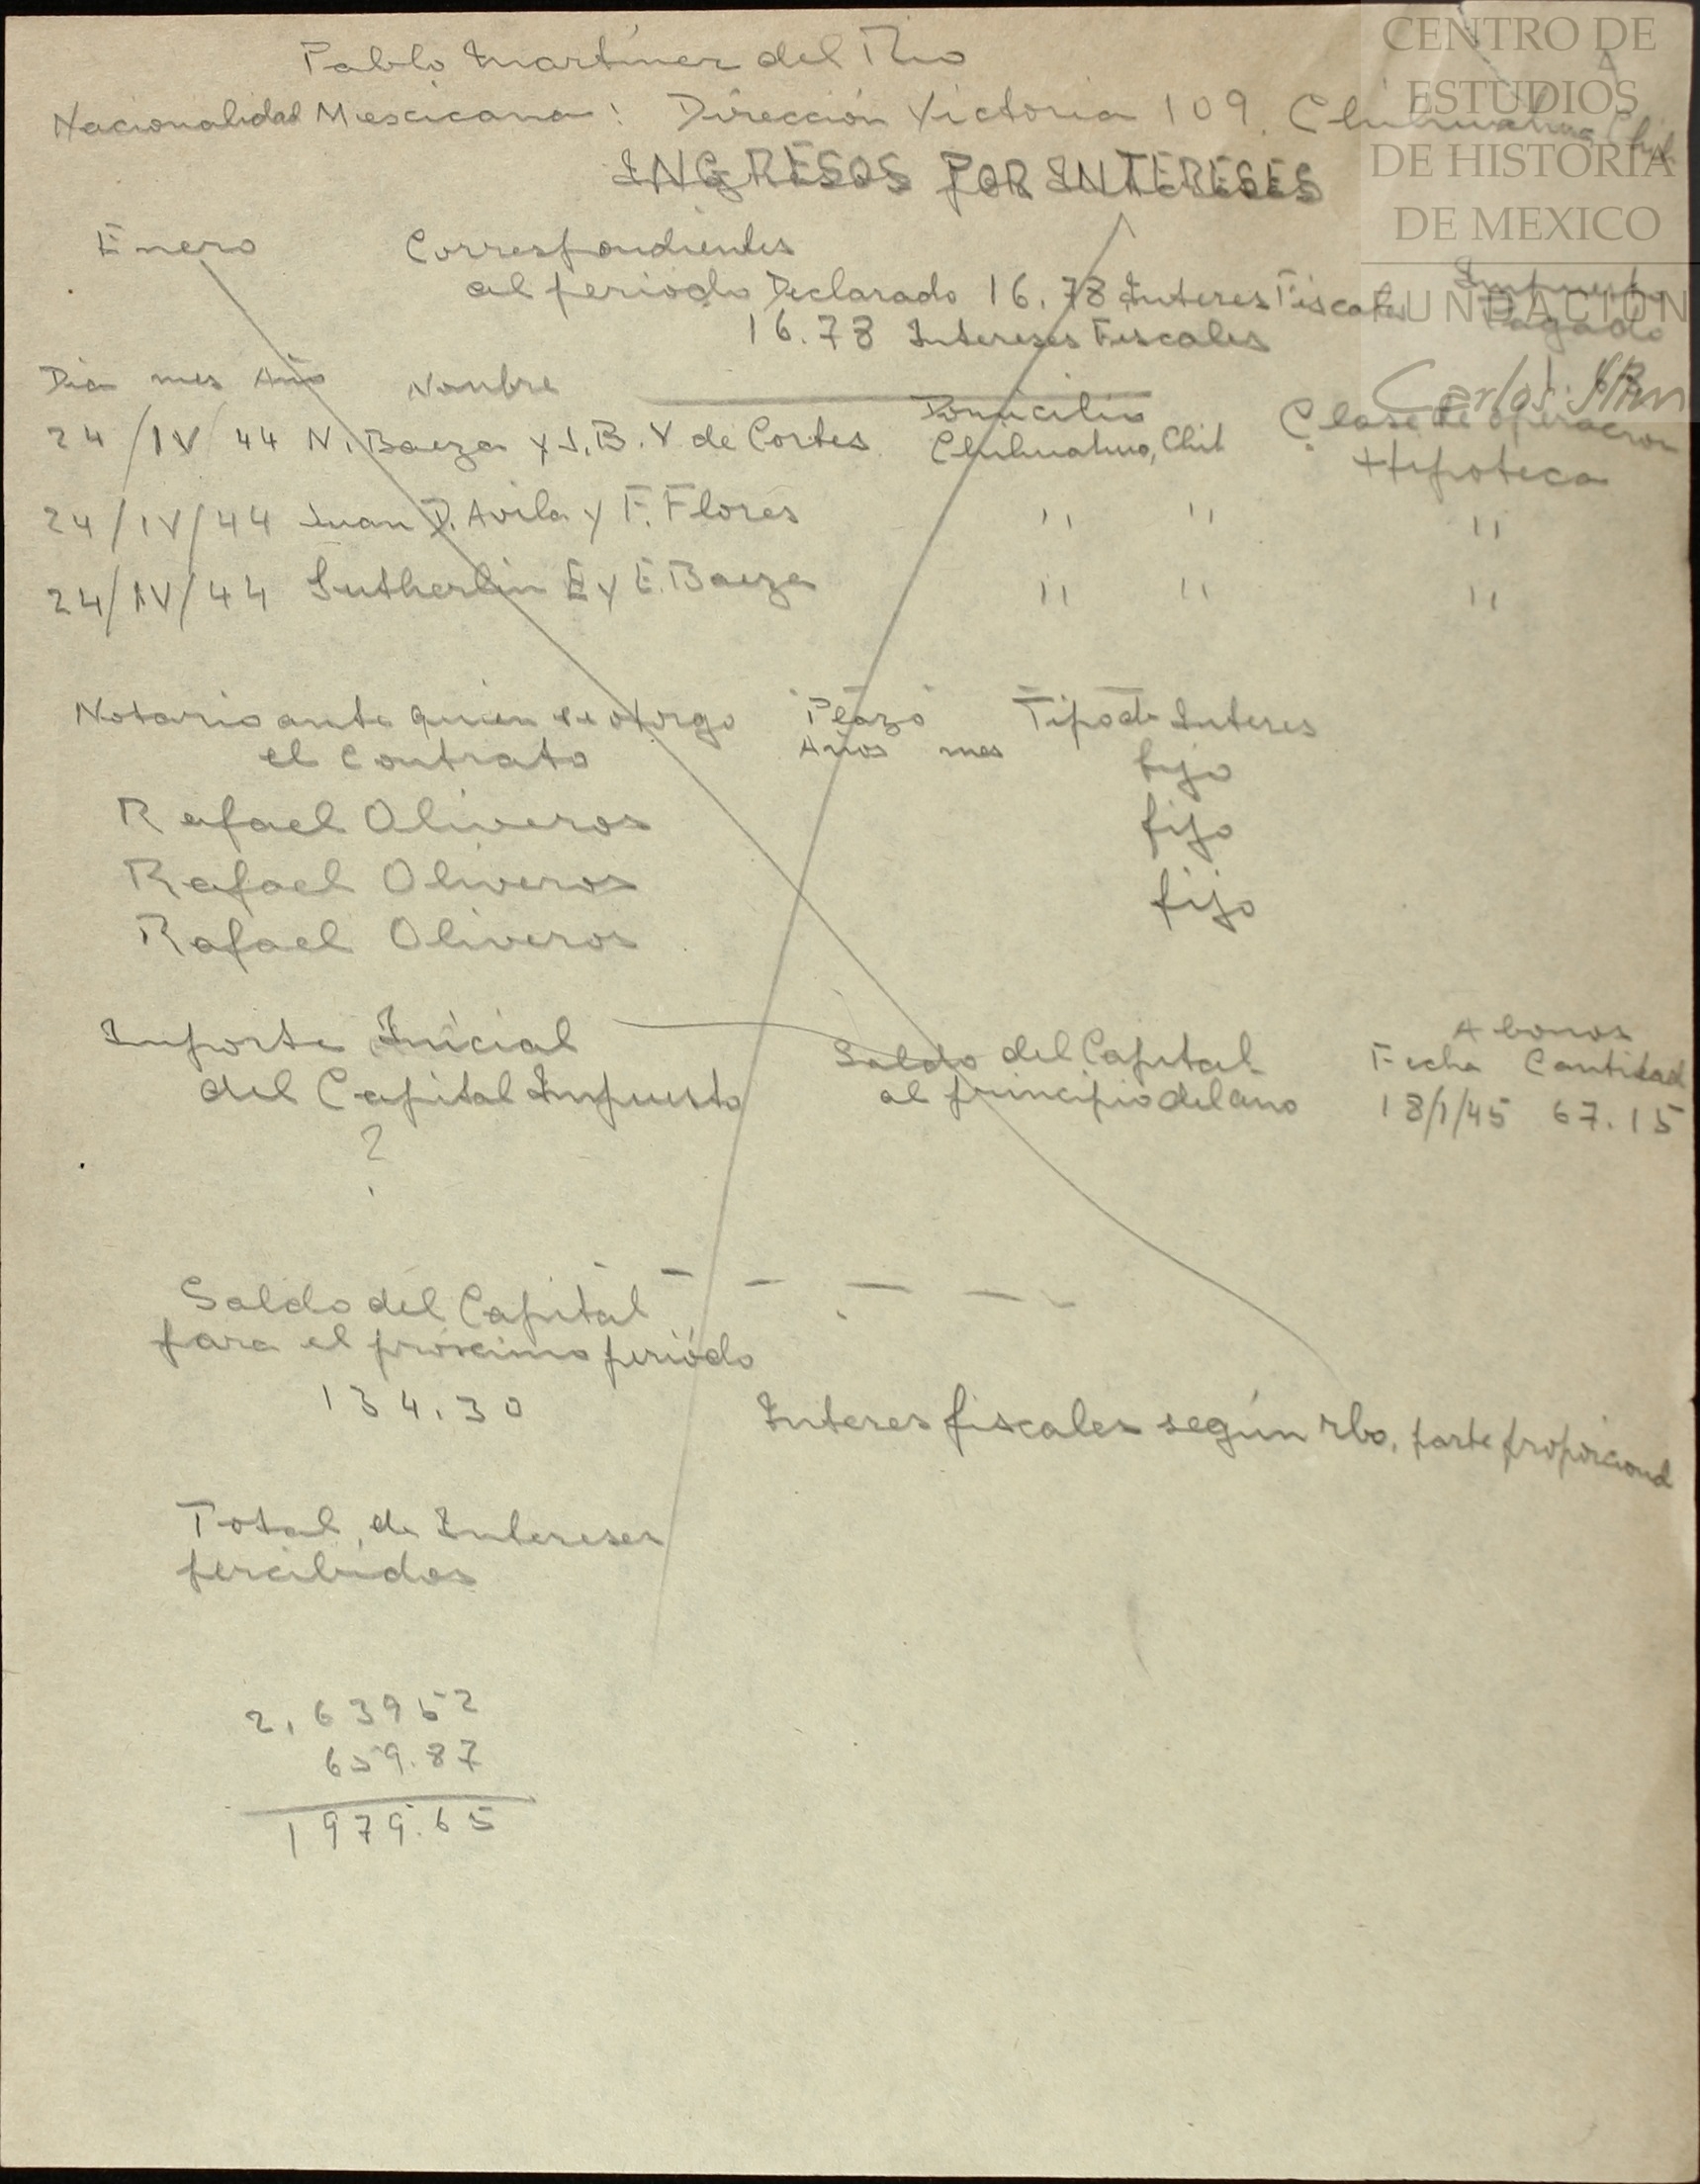 Pablo Martinez del Rio
Nacionalidad Mexicana: Dirección Victoria 109. Chihuahua, Chih
INGRESOS POR INTERESES
Enero Correspondientes
al periodo Declarado 16.78 Interes Fiscales Impuesto
16.78 Intereses Fiscales Pagado
Dia mes Año Nombre Domicilio Clase de operacion
24/IV/44 N. Baeza y J.B.V de Cortes Chihuahua, Chih Hipoteca
24/IV/44 Juan D. Avila y F. Flores " " "
24/IV/44 Sutherlin E y E. Baeza " " "
Notario ante quien se otorgo Plazo Tipo de Interes
el Contrato Años mes fijo
Rafael Oliveros fijo
Rafael Oliveros fijo
Rafael Oliveros
Importe Inicial Saldo del Capital Abonos
del Capital Impuesto al principio del ano Fecha Cantidad
? 18/1/45 67.15
Saldo del Capital
para el proximo periódo
134.30 Interes fiscales según rbo, parte proporcional
Total de Intereses
percibidos
2,63952
659.87
1979.65
CENTRO DE
ESTUDIOS
DE HISTORIA
DE MEXICO
FUNDACIÓN
Carlos Slim